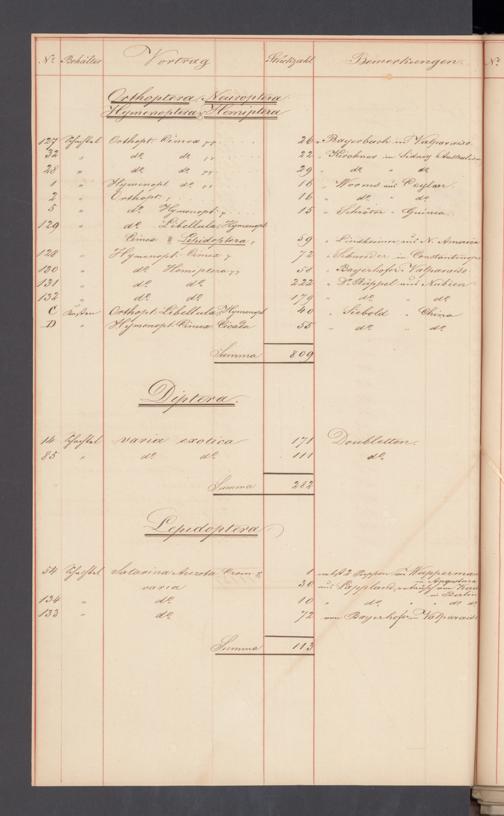 No. Behälter Vortrag Stückzahl Bemerkungen
Orthoptera, Neuroptera
Hymenoptera, Hemiptera
127 Schachtel Orthopt. Cimex „ 26 „ Bayerhofer in Valparaiso
32 „ do. do. „ 22 „ Kirchner in Sidney Australien
28 „ do. do. „ 29 „ do. do.
1 „ Hymenopt. do. „ 16 „ Worms auf Ceylan
2 „ Orthopt. 16 „ do. do.
5 „ do. Hymenopt. 15 „ Guinea
129 „ do. Libellula, Hymenopt.
Cimex & Lepidoptera 59 „ Lindheimer aus N. America
128 „ Hymenopt. Cimex 72 „ Schneider in Constantinopel
130 „ do. Hemiptera „ 58 „ Bayerhofer Valparaiso
131 „ do. do. 222 „ Dr. Rüppel aus Nubien
132 „ do. do. 179 „ do. do.
C Kasten Orthopt. Libellula, Hymenopt. 40 „ Siebold „ China
D „ Hymenopt. Cimex Cicada 55 „ do. „ do.
Summa 809
Diptera.
14 Schachtel varia exotica 171 Doubletten.
85 „ do. do. 111 do.
Summa 282
Lepidoptera
54 Schachtel Saturnia 1 2 Puppen
varia 30 aus Lappland
in Berlin
134 „ do. 10 „ do. „ do. do.
133 „ do. 72 von Bayerhofer in Valparaiso
Summa 113
No.